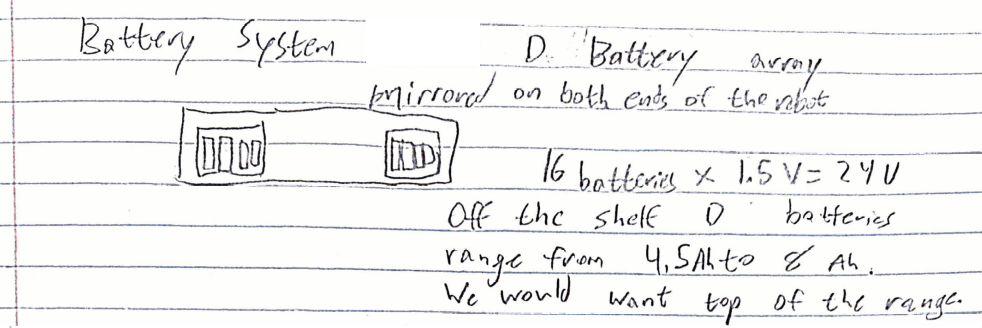 Battery System
D Battery array
mirrored on both ends of the robot
16 batteries x 1.5 V = 24 V
Off the shelf D batteries
range from 4.5Ah to 8 Ah.
We would want top of the range.